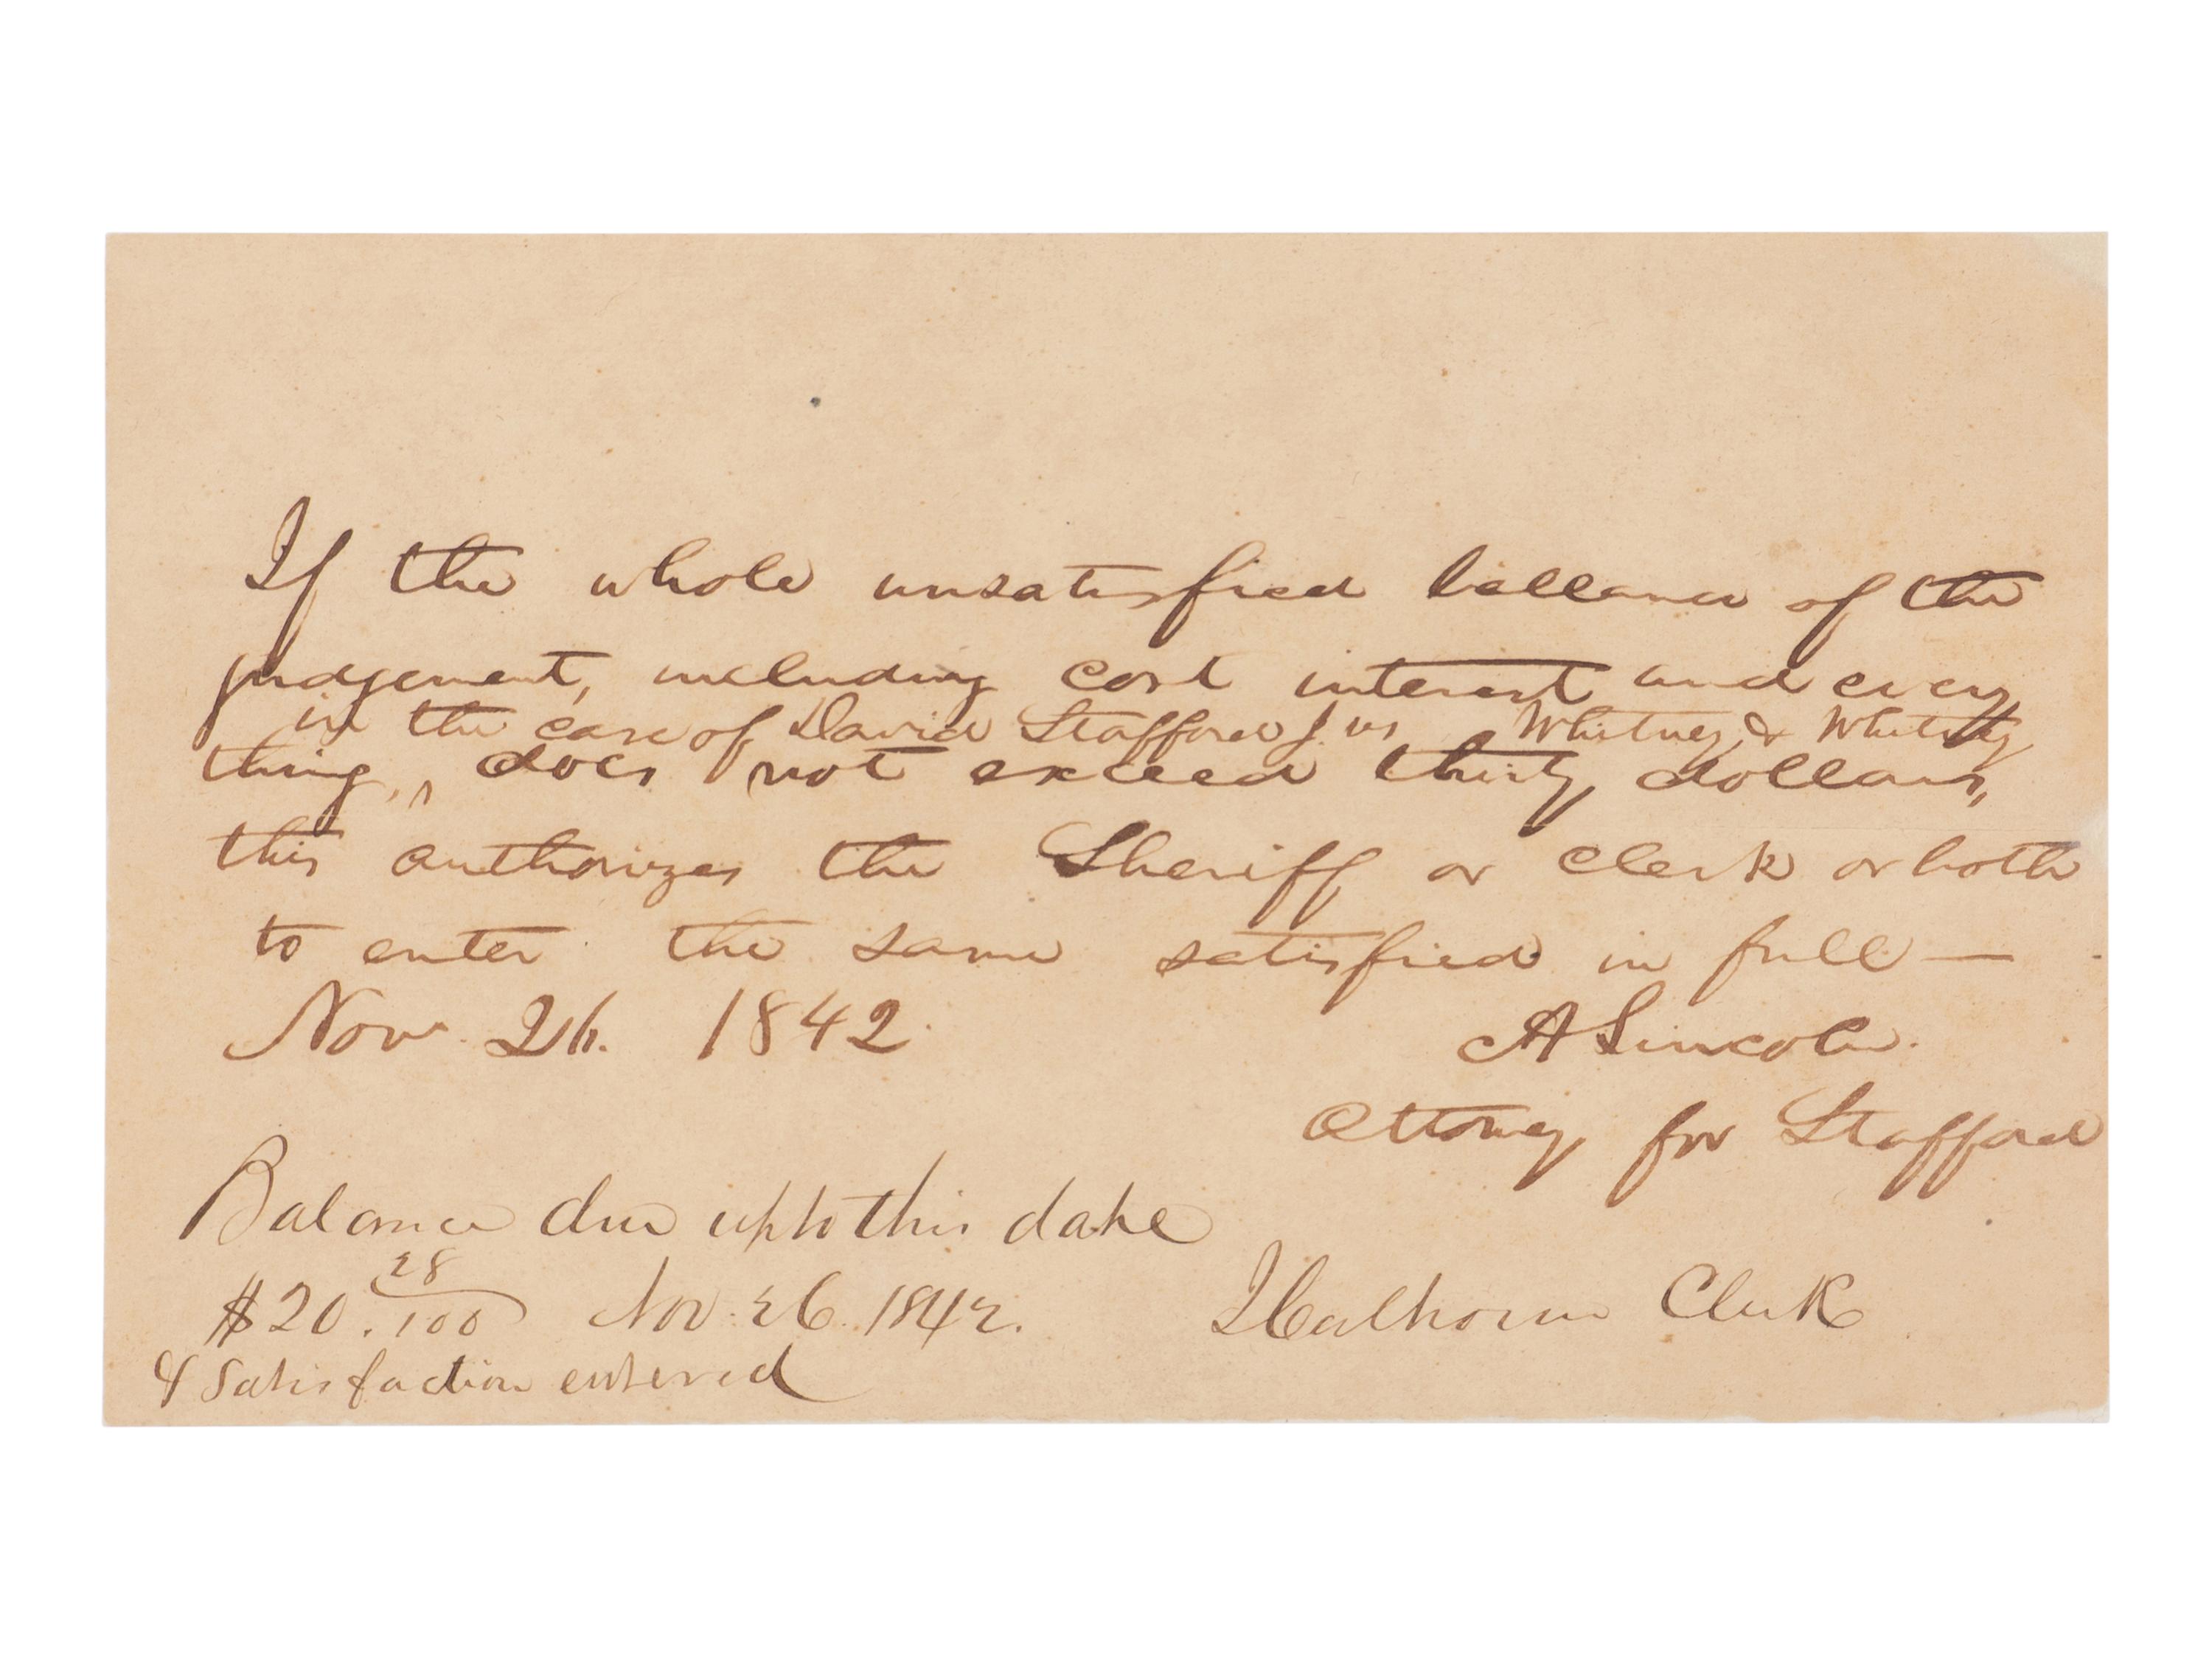 If the whole unsatisfied ballance of the
judgement, including cost interest and every
in the case of David Stafford J. vs Whitney & Whitney
thing, ‸ does not exceed thirty dollars,
this authorizes the Sheriff or clerk or both
to enter the same satisfied in full —
Nov. 26. 1842.
A Lincoln.
Attorney for Stafford
Balance due up to this date
$20. 28/100 Nov. 26. 1842.
J Calhoun Clerk
& Satisfaction entered